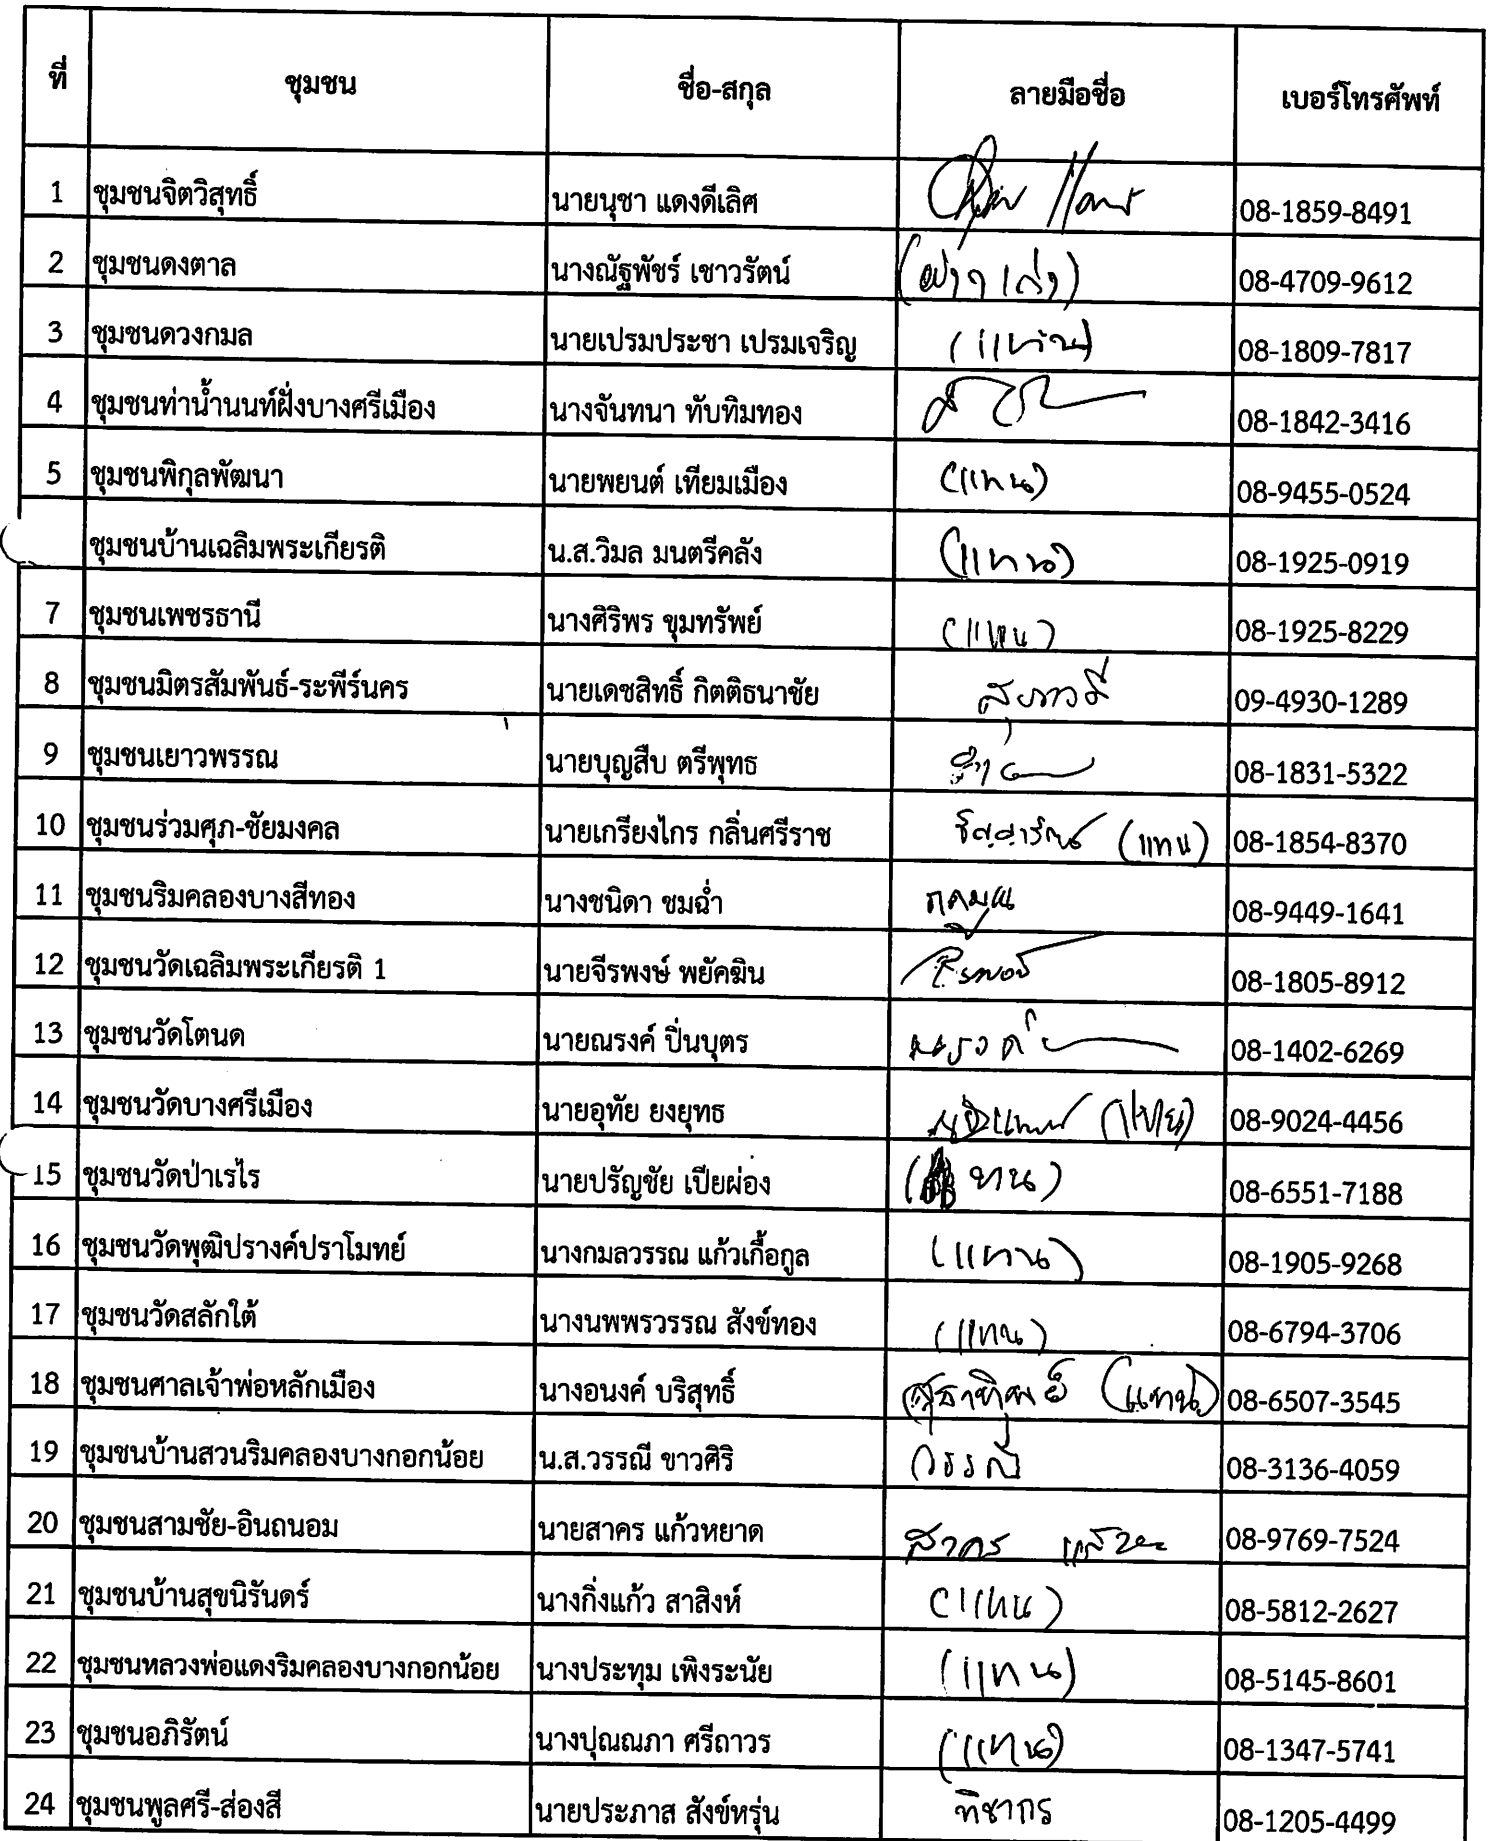 ที่ ชุมชน ชื่อ-สกุล ลายมือชื่อ เบอร์โทรศัพท์
1 ชุมชนจิตวิสุทธิ์ นายนุชา แดงดีเลิศ 08-1859-8491
2 ชุมชนดงตาล นางณัฐพัชร์ เชาวรัตน์ 08-4709-9612
3 ชุมชนดวงกมล นายเปรมประชา เปรมเจริญ 08-1809-7817
4 ชุมชนท่าน้ำนนท์ฝั่งบางศรีเมือง นางจันทนา ทับทิมทอง 08-1842-3416
5 ชุมชนพิกุลพัฒนา นายพยนต์ เทียมเมือง (แทน) 08-9455-0524
ชุมชนบ้านเฉลิมพระเกียรติ น.ส.วิมล มนตรีคลัง (แทน) 08-1925-0919
7 ชุมชนเพชรธานี นางศิริพร ขุมทรัพย์ (แทน) 08-1925-8229
8 ชุมชนมิตรสัมพันธ์-ระพีร์นคร นายเดชสิทธิ์ กิตติธนาชัย 09-4930-1289
9 ชุมชนเยาวพรรณ นายบุญสืบ ตรีพุทธ 08-1831-5322
10 ชุมชนร่วมศุภ-ชัยมงคล นายเกรียงไกร กลิ่นศรีราช (แทน) 08-1854-8370
11 ชุมชนริมคลองบางสีทอง นางชนิดา ชมฉ่ำ 08-9449-1641
12 ชุมชนวัดเฉลิมพระเกียรติ 1 นายจีรพงษ์ พยัคฆิน 08-1805-8912
13 ชุมชนวัดโตนด นายณรงค์ ปิ่นบุตร 08-1402-6269
14 ชุมชนวัดบางศรีเมือง นายอุทัย ยงยุทธ (แทน) 08-9024-4456
15 ชุมชนวัดป่าเรไร นายปรัญชัย เปียผ่อง 08-6551-7188
16 ชุมชนวัดพุฒิปรางค์ปราโมทย์ นางกมลวรรณ แก้วเกื้อกูล (แทน) 08-1905-9268
17 ชุมชนวัดสลักใต้ นางนพพรวรรณ สังข์ทอง (แทน) 08-6794-3706
18 ชุมชนศาลเจ้าพ่อหลักเมือง นางอนงค์ บริสุทธิ์ (แทน) 08-6507-3545
19 ชุมชนบ้านสวนริมคลองบางกอกน้อย น.ส.วรรณี ขาวศิริ วรรณี 08-3136-4059
20 ชุมชนสามชัย-อินถนอม นายสาคร แก้วหยาด สาคร 08-9769-7524
21 ชุมชนบ้านสุขนิรันดร์ นางกิ่งแก้ว สาสิงห์ (แทน) 08-5812-2627
22 ชุมชนหลวงพ่อแดงริมคลองบางกอกน้อย นางประทุม เพิงระนัย (แทน) 08-5145-8601
23 ชุมชนอภิรัตน์ นางปุณณภา ศรีถาวร (แทน) 08-1347-5741
24 ชุมชนพูลศรี-ส่องสี นายประภาส สังข์หรุ่น ทิชากร 08-1205-4499